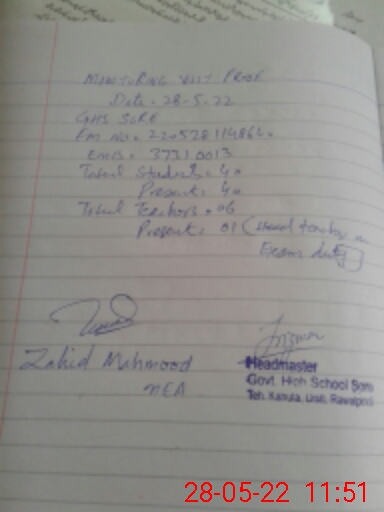 MONITORING VISIT PROOF
Date. 28-5-22
GHS SORE
EM No. 220528114864.
EMIS. 37310013
Total Students. 40
Present. 40
Total Teachers. 06
Present. 01 (
Exam duty)
Zahid Mahmood
MEA
Headmaster
Govt. High School Sore
Teh. Kahuta, Distt. Rawalpindi
28-05-22 11:51